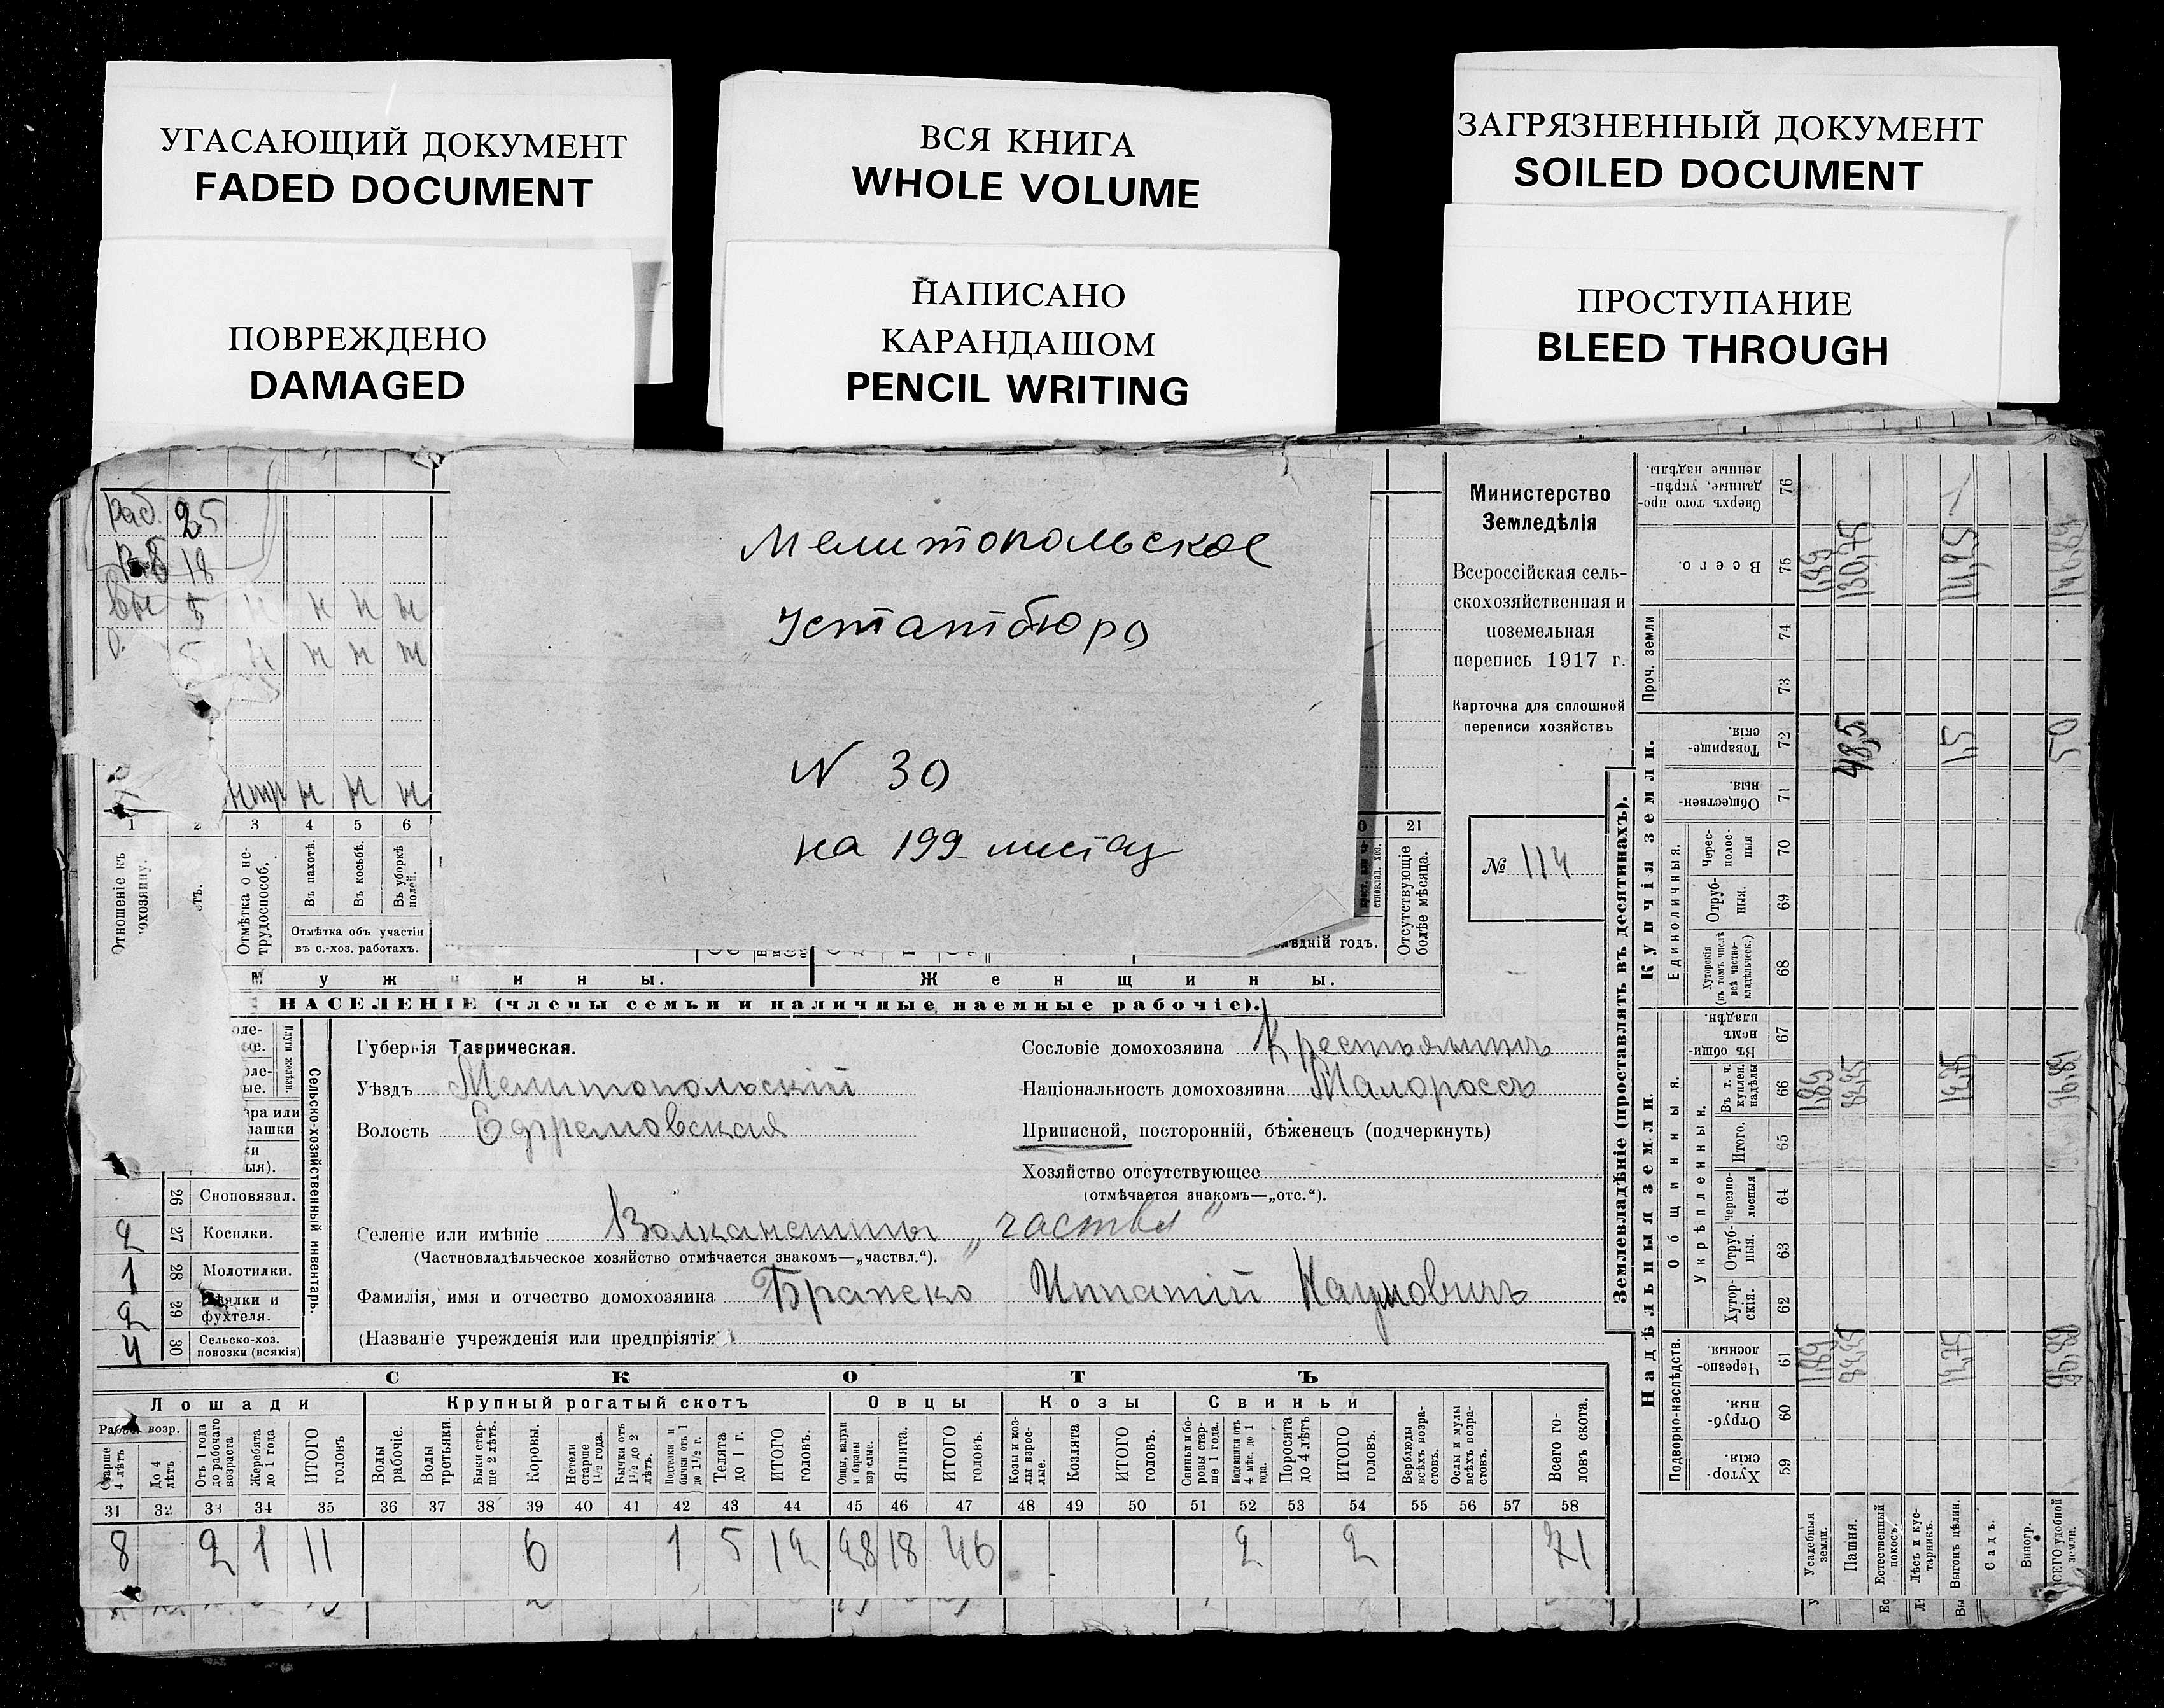 УГАСАЮЩИЙ ДОКУМЕНТ
FADED DOCUMENT
ВСЯ КНИГА
WHOLE VOLUME
ЗАГРЯЗНЕННЫЙ ДОКУМЕНТ
SOILED DOCUMENT
ПОВРЕЖДЕНО
DAMAGED
НАПИСАНО
КАРАНДАШОМ
PENCIL WRITING
ПРОСТУПАНИЕ
BLEED THROUGH
Мелитопольское
Устатбюро
N 30
на 199 листах
Министерство
Земледѣлія
Всероссійская сель-
скохозяйственная и
поземельная
перепись 1917 г.
Карточка для сплошной
переписи хозяйствъ
№ 114
раб. 25
18
5 н н н н
5 н н н н
н н н
1 2 3 4 5 6
Отношеніе къ
Отмѣтка о не-
трудоспособ.
Въ пахотѣ.
Въ косьбѣ.
Въ уборкѣ
полей.
Отмѣтка объ участіи
въ с.-хоз. работахъ.
21
Отсутствующіе
болѣе мѣсяца.
годъ.
Мужчины.
Женщины.
НАСЕЛЕНІЕ (члены семьи и наличные наемные рабочіе).
Губернія Таврическая.
Уѣздъ Мелитопольскій
Волость Ефремовская
Селеніе или имѣніе „частвл"
(Частновладѣльческое хозяйство отмѣчается знакомъ—„частвл.“).
Фамилія, имя и отчество домохозяина Ипатій Наумовичъ
(Названіе учрежденія или предпріятія)
Сословіе домохозяина Крестьянинъ
Національность домохозяина Малороссъ
Приписной, посторонній, бѣженецъ (подчеркнуть)
Хозяйство отсутствующее
(отмѣчается знакомъ—„отс.“).
Сельско-хозяйственный инвентарь.
26 Сноповязал.
2 27 Косилки.
1 28 Молотилки.
2 29 Вѣялки и
фухтеля.
4 30 Сельско-хоз.
повозки (всякія)
СКОТЪ
Лошади
Крупный рогатый скотъ
Овцы
Козы
Свиньи
Рабоч. возр.
Старше
4 лѣтъ
До 4
лѣтъ
Отъ 1 года
до рабочаго
возраста
Жеребята
до 1 года
ИТОГО
головъ
Волы
рабочіе.
Волы
третьяки.
Быки стар-
ше 2 лѣтъ.
Коровы.
Нетели
старше
1½ года.
Бычки отъ
1½ до 2
лѣтъ.
Телята
до 1 г.
ИТОГО
головъ.
Ягнята.
ИТОГО
головъ.
Козы и коз-
лы взрос-
лые.
Козлята
ИТОГО
головъ.
Свиньи и бо-
ровы стар-
ше 1 года.
Поросята
до 4 лѣтъ
ИТОГО
головъ.
Верблюды
всѣхъ возра-
стовъ.
Ослы и мулы
всѣхъ возра-
стовъ.
Всего го-
ловъ скота.
31 32 33 34 35 36 37 38 39 40 41 42 43 44 45 46 47 48 49 50 51 52 53 54 55 56 57 58
8 2 1 11 6 1 5 12 28 18 46 2 2 71
Землевладѣніе (проставлять въ десятинахъ).
Купчія земли.
Надѣльныя земли.
Проч. земли
Единоличныя.
Общинныя.
Укрѣпленныя.
Подворно-наслѣдств.
76
Сверхъ того про-
данные, укрѣп-
ленные надѣлы.
75 Всего. 1,89 130,75 14,25 146,89
74
73
72 Товарище-
скія. 48,5 1,5 50
71 Обществен-
ныя.
70 Черес-
полос-
ныя
69 Отруб-
ныя.
68 Хуторскія
(въ томъ числѣ
всѣ частно-
владѣльческ.)
67 Въ общин-
номъ
владѣн.
66 Въ т. ч.
куплен.
надѣлы 1,89 12,75 96,89
65 Итого.
64 Черезпо-
лосныя
63 Отруб-
ныя.
62 Хутор-
скія.
61 Черезпо-
лосныя 1,89 12,75 96,89
60 Отруб-
ныя.
59 Хутор-
скія
Усадебныя
земли.
Пашня.
Естественный
покосъ.
Лѣсъ и кус-
тарникъ.
Выгонъ цѣлин.
Садъ.
Виногр.
ВСЕГО удобной
земли.